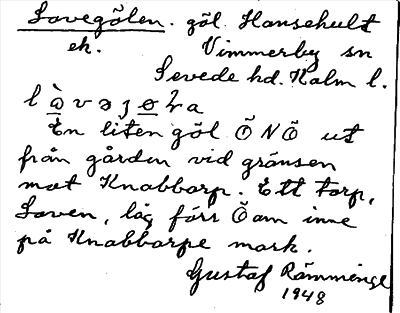 Lovegölen. göl. Hansehult
ek. Vimmerby sn
Sevede hd. Kalm l.
En liten göl ÖNÖ ut
från gården vid gränsen
mot Knabbarp. Ett torp,
Loven, låg förr Ö om inne
på Knabbarps mark.
Gustaf Rämminge
1948